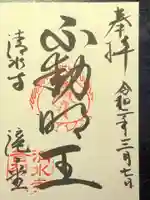 奉拝 令和二年三月七日
不動明王
清水寺
滝之堂